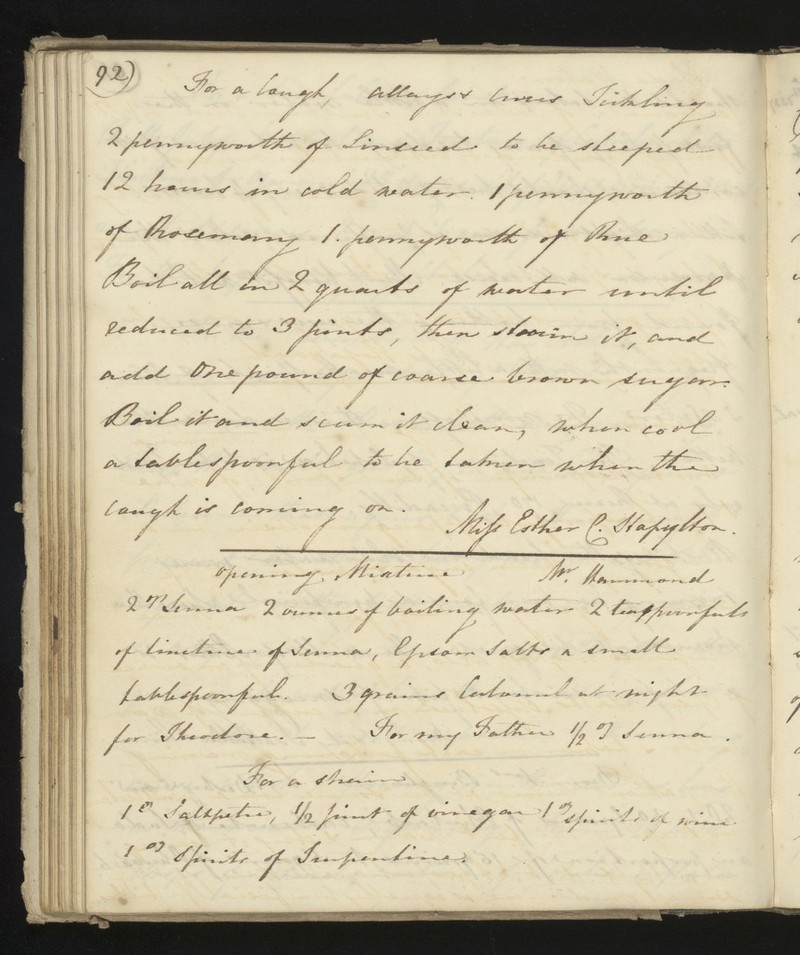 92)
For a Cough, allays & cures Tickling
2 pennyworth of Linseed to be steeped
12 hours in cold water. 1 pennyworth
of Rosemary 1. pennyworth of Rue
Boil all in 2 quarts of water until
reduced to 3 pints, then strain it, and
add One pound of coarse brown sugar.
Boil it and scum it clean, when cool
a tablespoonful to be taken when the
cough is coming on.
Miss Esther C. Stapylton.
opening Mixture Mr. Hammond
2 oz Senna 2 ounces of boiling water 2 teaspoonfuls
of tincture of Senna, Epsom Salts a small
tablespoonful. 3 grains Calomel at night
for Theodore. — For my Father 1/2 oz Senna.
For a strain
1 oz Saltpetre, 1/2 pint of vinegar 1 oz spirits of wine
1 oz Spirits of Turpentine.